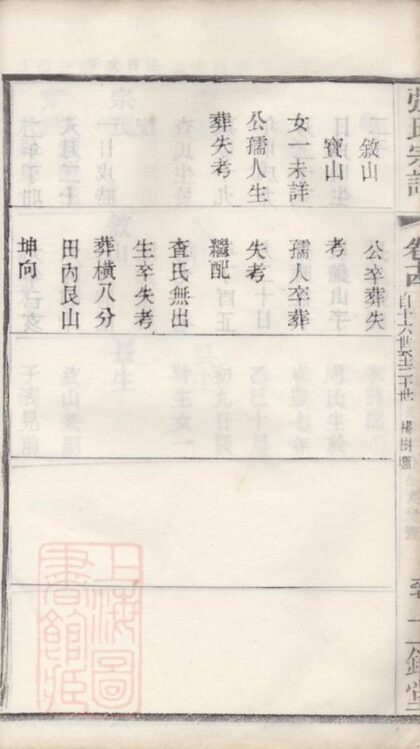 張氏宗譜
卷十四
自十六世至二十世
敘山
寶山
女一未詳
公孺人生
葬失考
公卒葬失
考
孺人卒葬
失考
繼配
査氏無出
生卒失考
葬橫八分
田內艮山
坤向
上海圖
書館藏